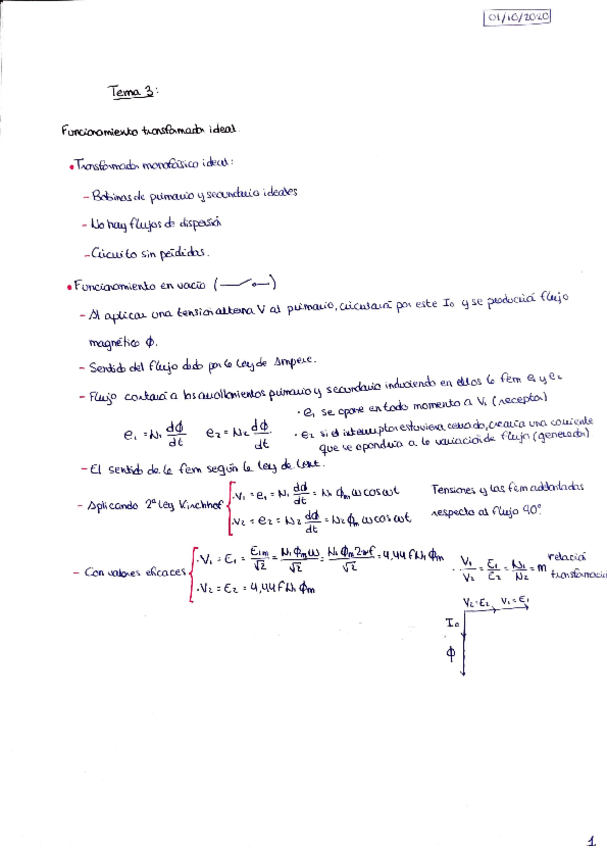 01/10/2020
Tema 3:
Funcionamiento transformador ideal.
• Transformador monofásico ideal:
- Bobinas de primario y secundario ideales
- No hay flujos de dispersión
- Circuito sin pérdidas.
• Funcionamiento en vacío ( )
- Al aplicar una tensión alterna V al primario, circulará por este I₀ y se producirá flujo
magnético Φ.
- Sentido del flujo dado por la Ley de Ampere.
- Flujo cortará a los arrollamientos primario y secundario induciendo en ellos la fem e₁ y e₂
e₁ = N₁ dΦ/dt e₂ = N₂ dΦ/dt
· e₁ se opone en todo momento a V₁ (receptor)
· e₂ si el interruptor estuviera cerrado, crearía una corriente
que se opondría a la variación de flujo (generador)
- El sentido de la fem según la ley de Lenz.
- Aplicando 2ª Ley Kirchhof { · V₁ = e₁ = N₁ dΦ/dt = N₁ Φm ω cos ωt
· V₂ = e₂ = N₂ dΦ/dt = N₂ Φm ω cos ωt
Tensiones y las fem adelantadas
respecto al flujo 90°
- Con valores eficaces { · V₁ = E₁ = E₁m/√2 = N₁Φmω/√2 = N₁Φm2πf/√2 = 4,44 f N₁ Φm
· V₂ = E₂ = 4,44 f N₁ Φm
∴ V₁/V₂ = E₁/E₂ = N₁/N₂ = m relación
transformación
V₂=E₂ V₁=E₁
I₀
Φ
1